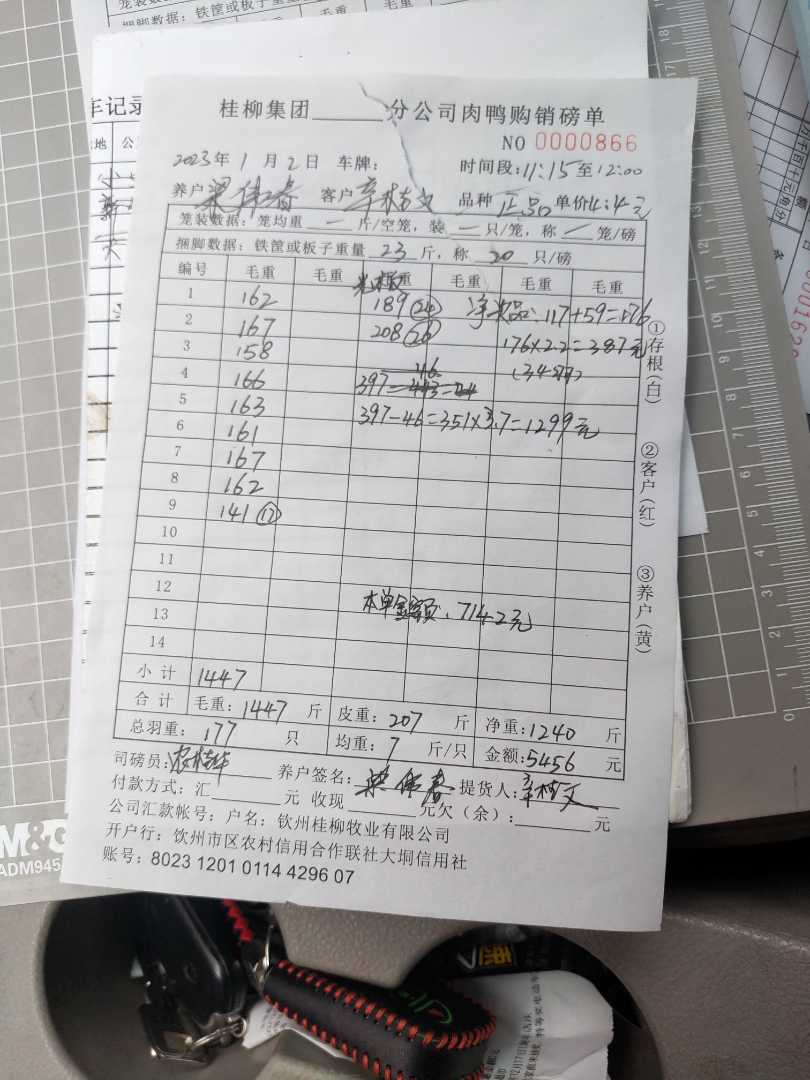 笼装数据：
捆脚数据：铁筐或板子重量
车记录
桂柳集团______分公司肉鸭购销磅单
NO 0000866
2023年1月2日 车牌： 时间段：11:15至12:00
养户 梁伟春 客户 辛桂文 品种 正品 单价4.4元
笼装数据：笼均重 一 斤/空笼，装 一 只/笼，称 一 笼/磅
捆脚数据：铁筐或板子重量 23 斤，称 20 只/磅
编号 毛重 毛重 毛重 毛重 毛重 毛重
1 162 189 (24) 净次品：117+59=176
2 167 208 (26) 176×2.2=387元
3 158 (34-只)
4 166 397-443=44 46
5 163 397-46=351×3.7=1299元
6 161
7 167
8 162
9 141 (17)
10
11
12
13 本单金额：7142元
14
小计 1447
合计 毛重：1447 斤 皮重：207 斤 净重：1240 斤
总羽重：177 只 均重：7 斤/只 金额：5456 元
司磅员： 养户签名：梁伟春 提货人：辛桂文
付款方式：汇______元 收现______元欠（余）：______元
公司汇款帐号：户名：钦州桂柳牧业有限公司
开户行：钦州市区农村信用合作联社大垌信用社
账号：8023 1201 0114 4296 07
①存根（白）
②客户（红）
③养户（黄）
M&G
ADM945